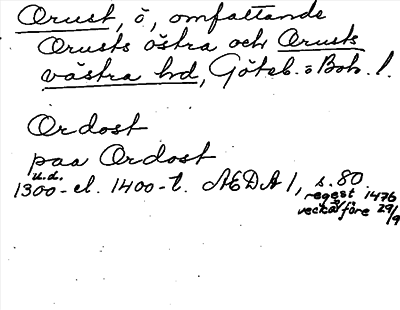 Orust, ö, omfattande
Orusts östra och Orusts
västra hd, Göteb. o Boh. l.
Ordost
paa Ordost
u.d.
1300- el. 1400-t. AEDA 1, s. 80
regest 1476
vecka före 29/9